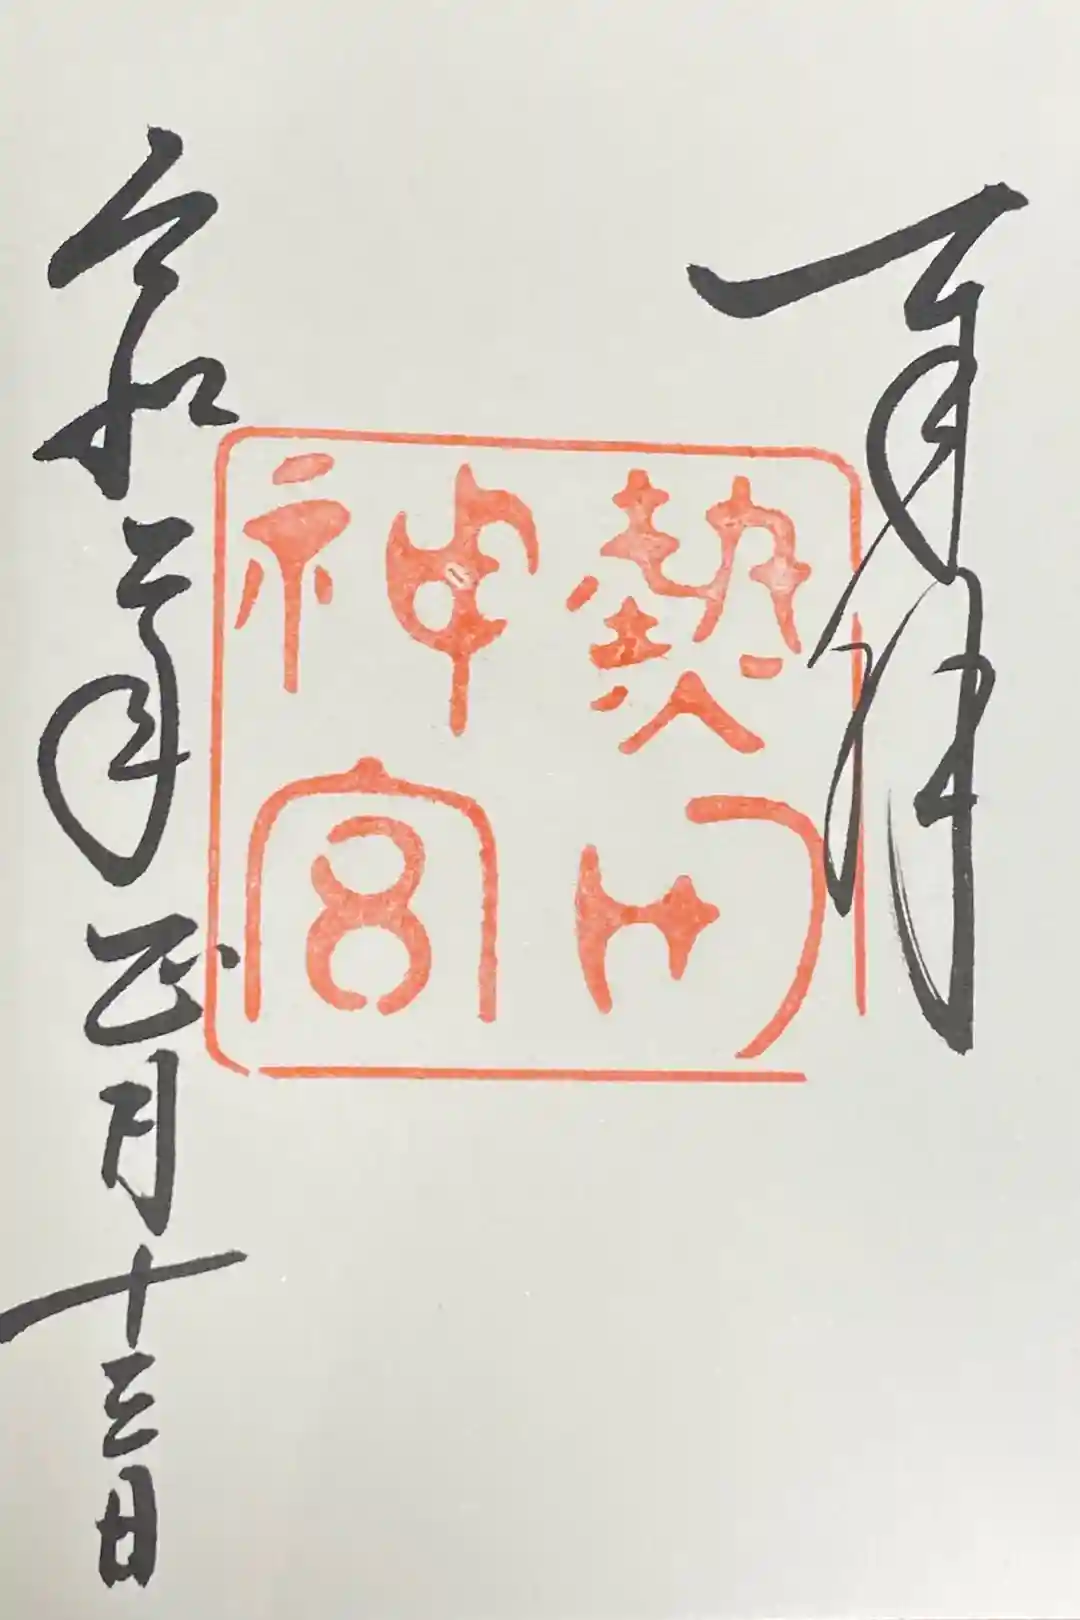 奉拝
熱田
神宮
令和二年正月十三日